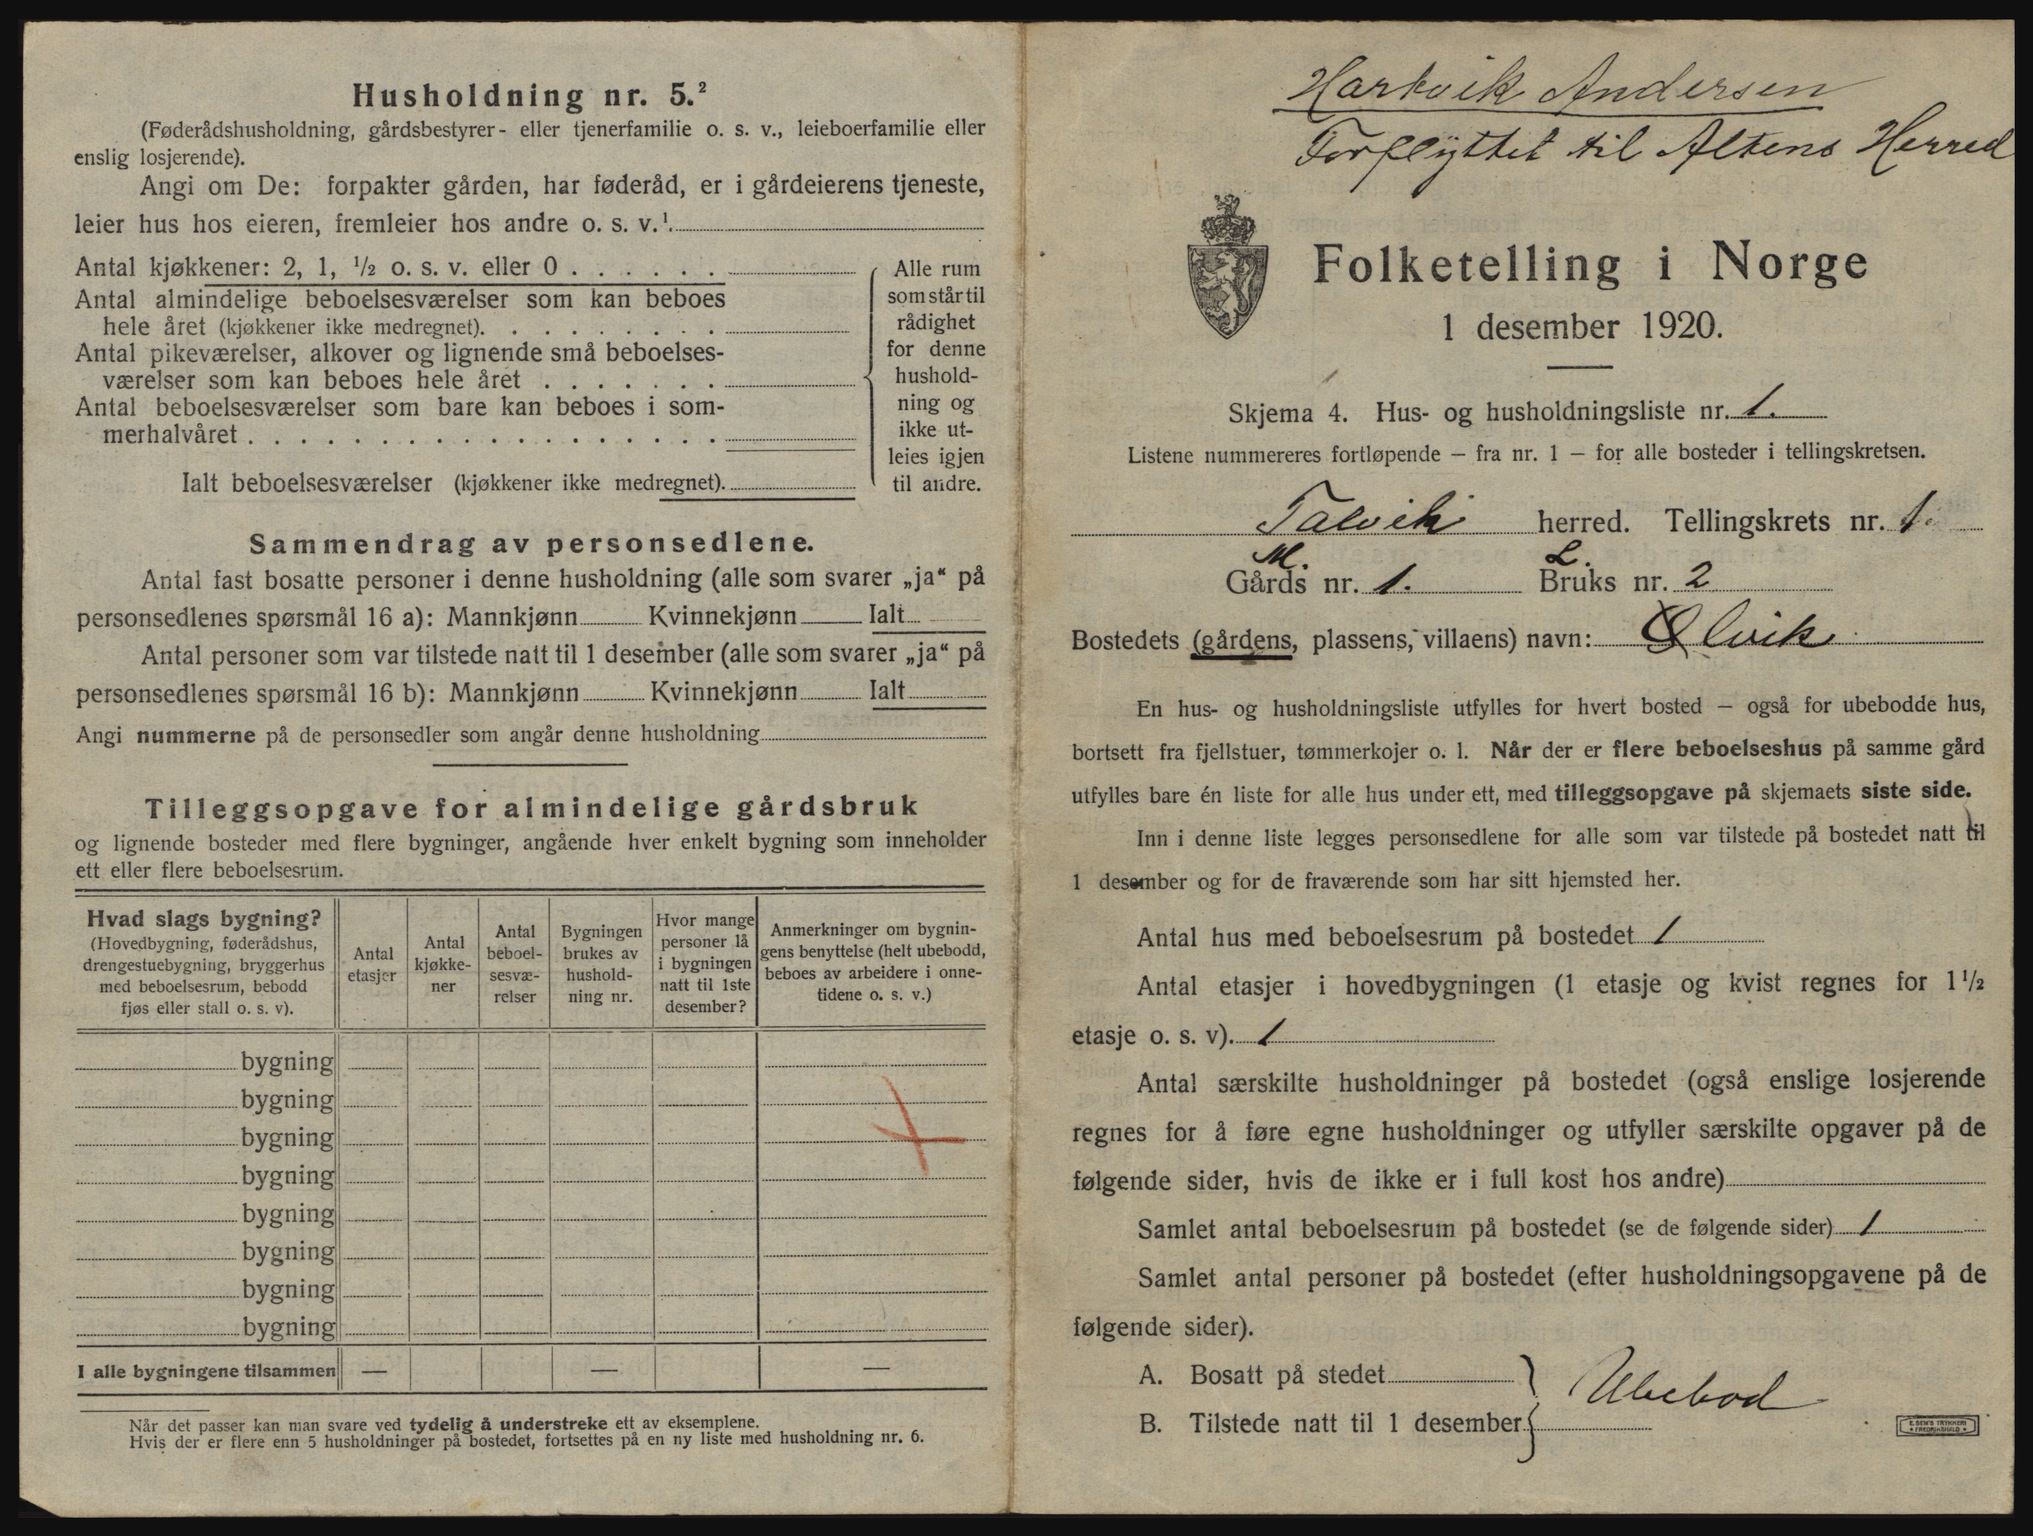 Husholdning nr. 5.²
(Føderådshusholdning, gårdsbestyrer- eller tjenerfamilie o. s. v., leieboerfamilie eller
enslig losjerende).
Angi om De: forpakter gården, har føderåd, er i gårdeierens tjeneste,
leier hus hos eieren, fremleier hos andre o. s. v.¹.
Antal kjøkkener: 2, 1, ½ o. s. v. eller 0 . . . . . .
Antal almindelige beboelsesværelser som kan beboes
hele året (kjøkkener ikke medregnet). . . . . . . . .
Antal pikeværelser, alkover og lignende små beboelses-
værelser som kan beboes hele året . . . . . . .
Antal beboelsesværelser som bare kan beboes i som-
merhalvåret . . . . . . . . . . . . . . . . . .
Ialt beboelsesværelser (kjøkkener ikke medregnet).
Alle rum
som står til
rådighet
for denne
hushold-
ning og
ikke ut-
leies igjen
til andre.
Sammendrag av personsedlene.
Antal fast bosatte personer i denne husholdning (alle som svarer „ja“ på
personsedlenes spørsmål 16 a): Mannkjønn Kvinnekjønn Ialt
Antal personer som var tilstede natt til 1 desember (alle som svarer „ja“ på
personsedlenes spørsmål 16 b): Mannkjønn Kvinnekjønn Ialt
Angi nummerne på de personsedler som angår denne husholdning
Tilleggsopgave for almindelige gårdsbruk
og lignende bosteder med flere bygninger, angående hver enkelt bygning som inneholder
ett eller flere beboelsesrum.
Hvad slags bygning?
(Hovedbygning, føderådshus,
drengestuebygning, bryggerhus
med beboelsesrum, bebodd
fjøs eller stall o. s. v).
Antal
etasjer
Antal
kjøkke-
ner
Antal
beboel-
sesvæ-
relser
Bygningen
brukes av
hushold-
ning nr.
Hvor mange
personer lå
i bygningen
natt til 1ste
desember?
Anmerkninger om bygnin-
gens benyttelse (helt ubebodd,
beboes av arbeidere i onne-
tidene o. s. v.)
bygning
bygning
bygning
bygning
bygning
bygning
bygning
bygning
I alle bygningene tilsammen — — —
Når det passer kan man svare ved tydelig å understreke ett av eksemplene.
Hvis der er flere enn 5 husholdninger på bostedet, fortsettes på en ny liste med husholdning nr. 6.
Hartvik Andersen
Forflyttet til Altens Herred
Folketelling i Norge
1 desember 1920.
Skjema 4. Hus- og husholdningsliste nr. 1.
Listene nummereres fortløpende — fra nr. 1 — for alle bosteder i tellingskretsen.
Talvik herred. Tellingskrets nr. 1.
M. L.
Gårds nr. 1. Bruks nr. 2
Bostedets (gårdens, plassens, villaens) navn: Olvik
En hus- og husholdningsliste utfylles for hvert bosted — også for ubebodde hus,
bortsett fra fjellstuer, tømmerkojer o. l. Når der er flere beboelseshus på samme gård
utfylles bare én liste for alle hus under ett, med tilleggsopgave på skjemaets siste side.
Inn i denne liste legges personsedlene for alle som var tilstede på bostedet natt til
1 desember og for de fraværende som har sitt hjemsted her.
Antal hus med beboelsesrum på bostedet 1
Antal etasjer i hovedbygningen (1 etasje og kvist regnes for 1 ½
etasje o. s. v). 1
Antal særskilte husholdninger på bostedet (også enslige losjerende
regnes for å føre egne husholdninger og utfyller særskilte opgaver på de
følgende sider, hvis de ikke er i full kost hos andre)
Samlet antal beboelsesrum på bostedet (se de følgende sider) 1
Samlet antal personer på bostedet (efter husholdningsopgavene på de
følgende sider).
A. Bosatt på stedet
Ubebod
B. Tilstede natt til 1 desember
E. SEM'S TRYKKERI
FREDRIKSHALD